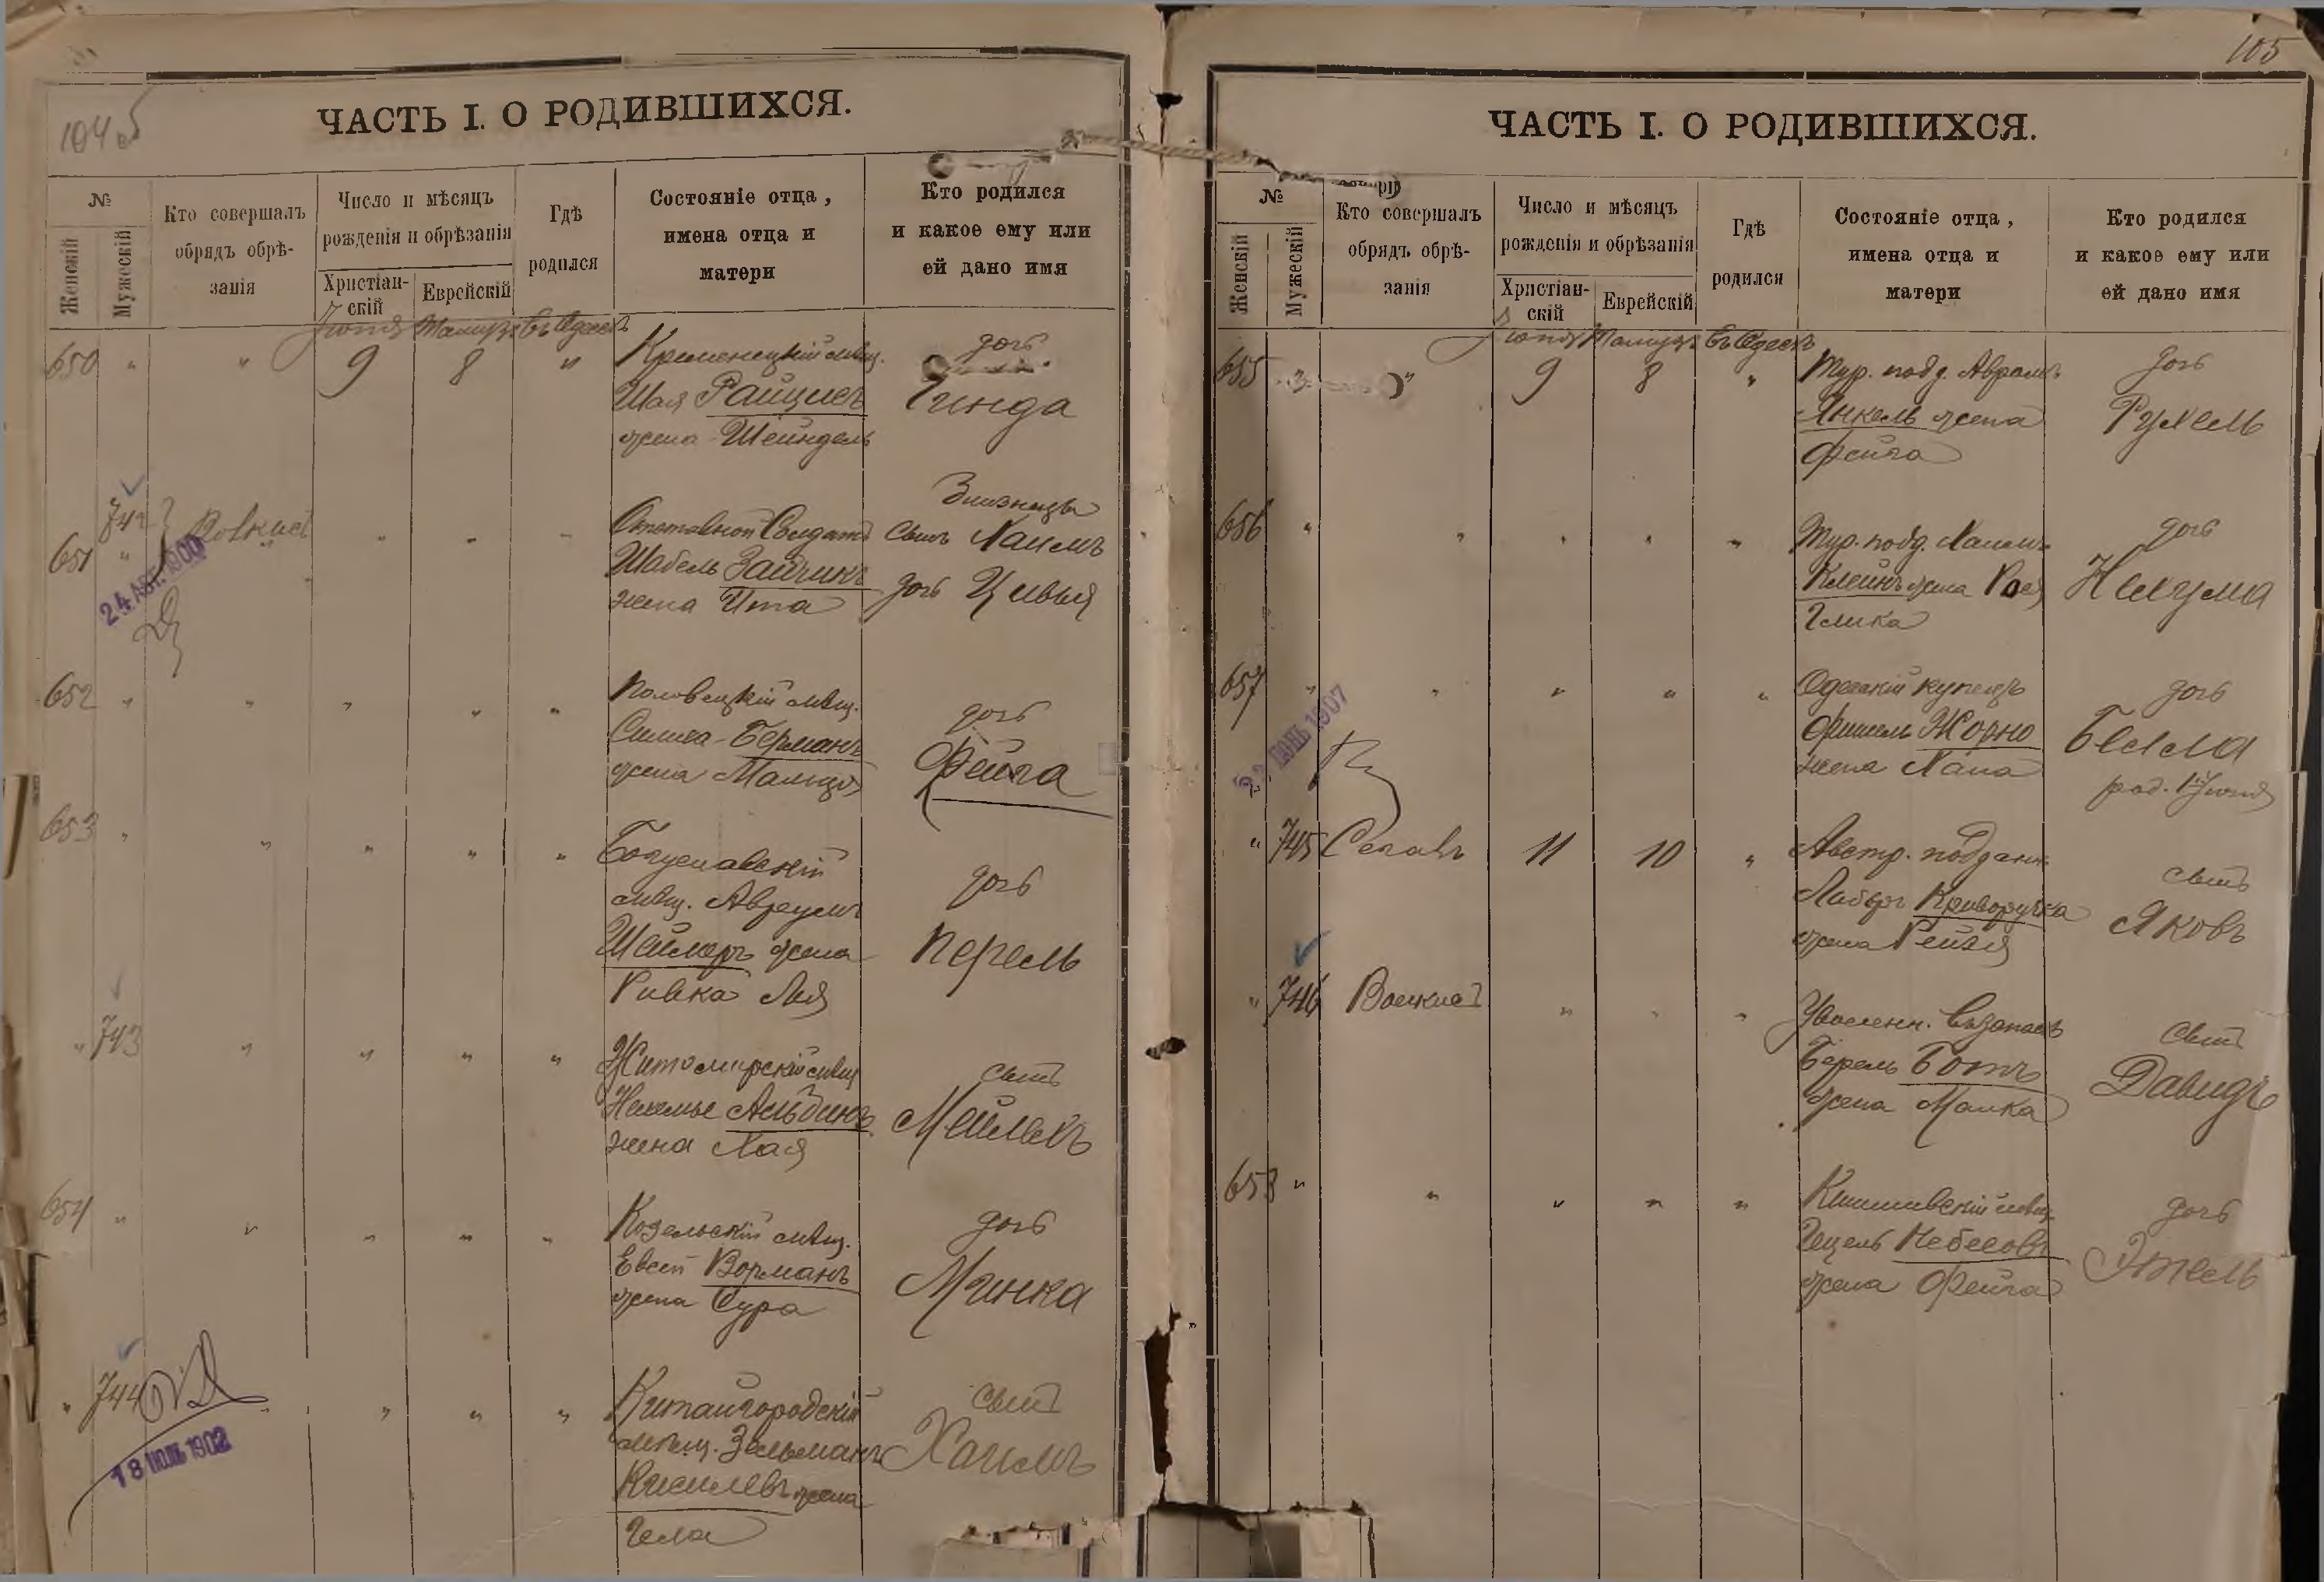 104 об
ЧАСТЬ I. О РОДИВШИХСЯ.
№
Женскій
Мужескій
Кто совершалъ
обрядъ обрѣ-
занія
Число и мѣсяцъ
рожденія и обрѣзанія
Христіан-
скій
Еврейскій
Гдѣ
родился
Состояніе отца,
имена отца и
матери
Кто родился
и какое ему или
ей дано имя
650 " " 9 8 "
Кременецкій мѣщ.
Шая
жена Шейндель
дочь
Гинда
742
651 "
24 АВГ. 1900
Отставной Солдатъ
Шабель Зайчикъ
жена Ита
Близнецы
сынъ Хаимъ
дочь Цивья
652 " " " " "
мѣщ.
Симха Берманъ
жена
дочь
Фейга
653 " " " " "
Богуславскій
мѣщ.
жена
Ривка Лея
дочь
Перель
" 743 " " " "
Житомирскій мѣщ
Нехемье Альбинъ
жена Хая
сынъ
Мейлехъ
654 " " " " "
Козельскій мѣщ.
Евсей Ворманъ
жена Сура
дочь
Минка
" 744 " " " "
18 ІЮЛЬ 1902
Китайгородскій
мѣщ. Зельманъ
жена
Гела
сынъ
Хаимъ
105
ЧАСТЬ I. О РОДИВШИХСЯ.
№
Женскій
Мужескій
Кто совершалъ
обрядъ обрѣ-
занія
Число и мѣсяцъ
рожденія и обрѣзанія
Христіан-
скій
Еврейскій
Гдѣ
родился
Состояніе отца,
имена отца и
матери
Кто родился
и какое ему или
ей дано имя
655 " 9 8 "
Тур. подд. Абрамъ
Янкель жена
Фейга
дочь
Рухель
656 " " " " "
Тур. подд. Хаимъ
Клейнъ жена
Глика
дочь
Нехума
657 " " " " "
1907
Одесскій купецъ
Фишель Жорно
жена Хана
дочь
Бейла
" 745 Сегалъ 11 10 "
Австр. поддан.
Криворучка
жена Рейзя
сынъ
Яковъ
" 746 " " "
Уволенн. въ запасъ
Берель Ботъ
жена Малка
сынъ
Давидъ
658 " " " " "
мѣщ.
Гецель Небесовъ
жена Фейга
дочь
Этель